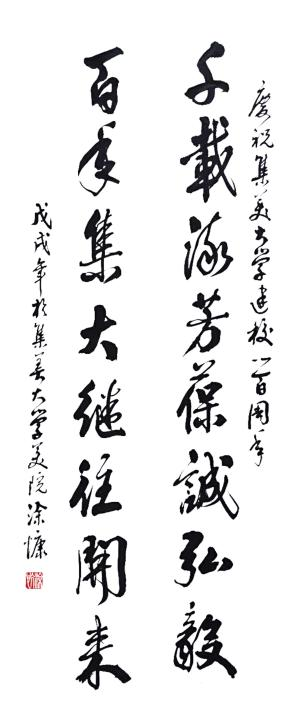 慶祝集美大学建校一百周年
千載流芳葆誠弘毅
百年集大継往開来
戊戌年於集美大学美院涂慷